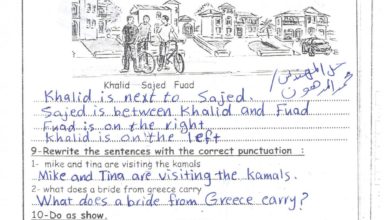 Khalid Sajed Fuad
Khalid is next to Sajed.
Sajed is between Khalid and Fuad
Fuad is on the right
Khalid is on the left
9-Rewrite the sentences with the correct punctuation :
1- mike and tina are visiting the kamals
Mike and Tina are visiting the Kamals.
2- what does a bride from greece carry
What does a bride from Greece carry?
10-Do as show.